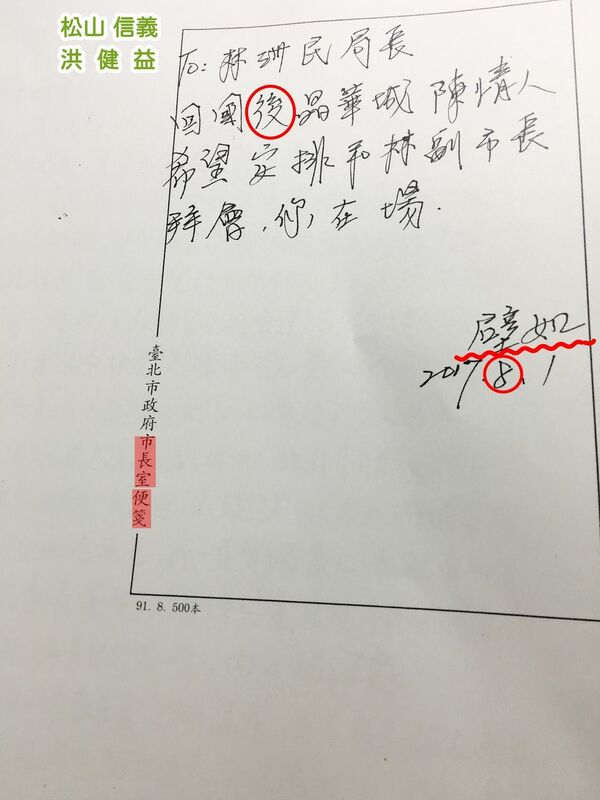 松山 信義
洪 健 益
To: 林洲民局長
回國後晶華城陳情人
希望安排和林副市長
拜會，你在場.
壁如
2017.8.1
臺北市政府市長室便箋
91. 8. 500本